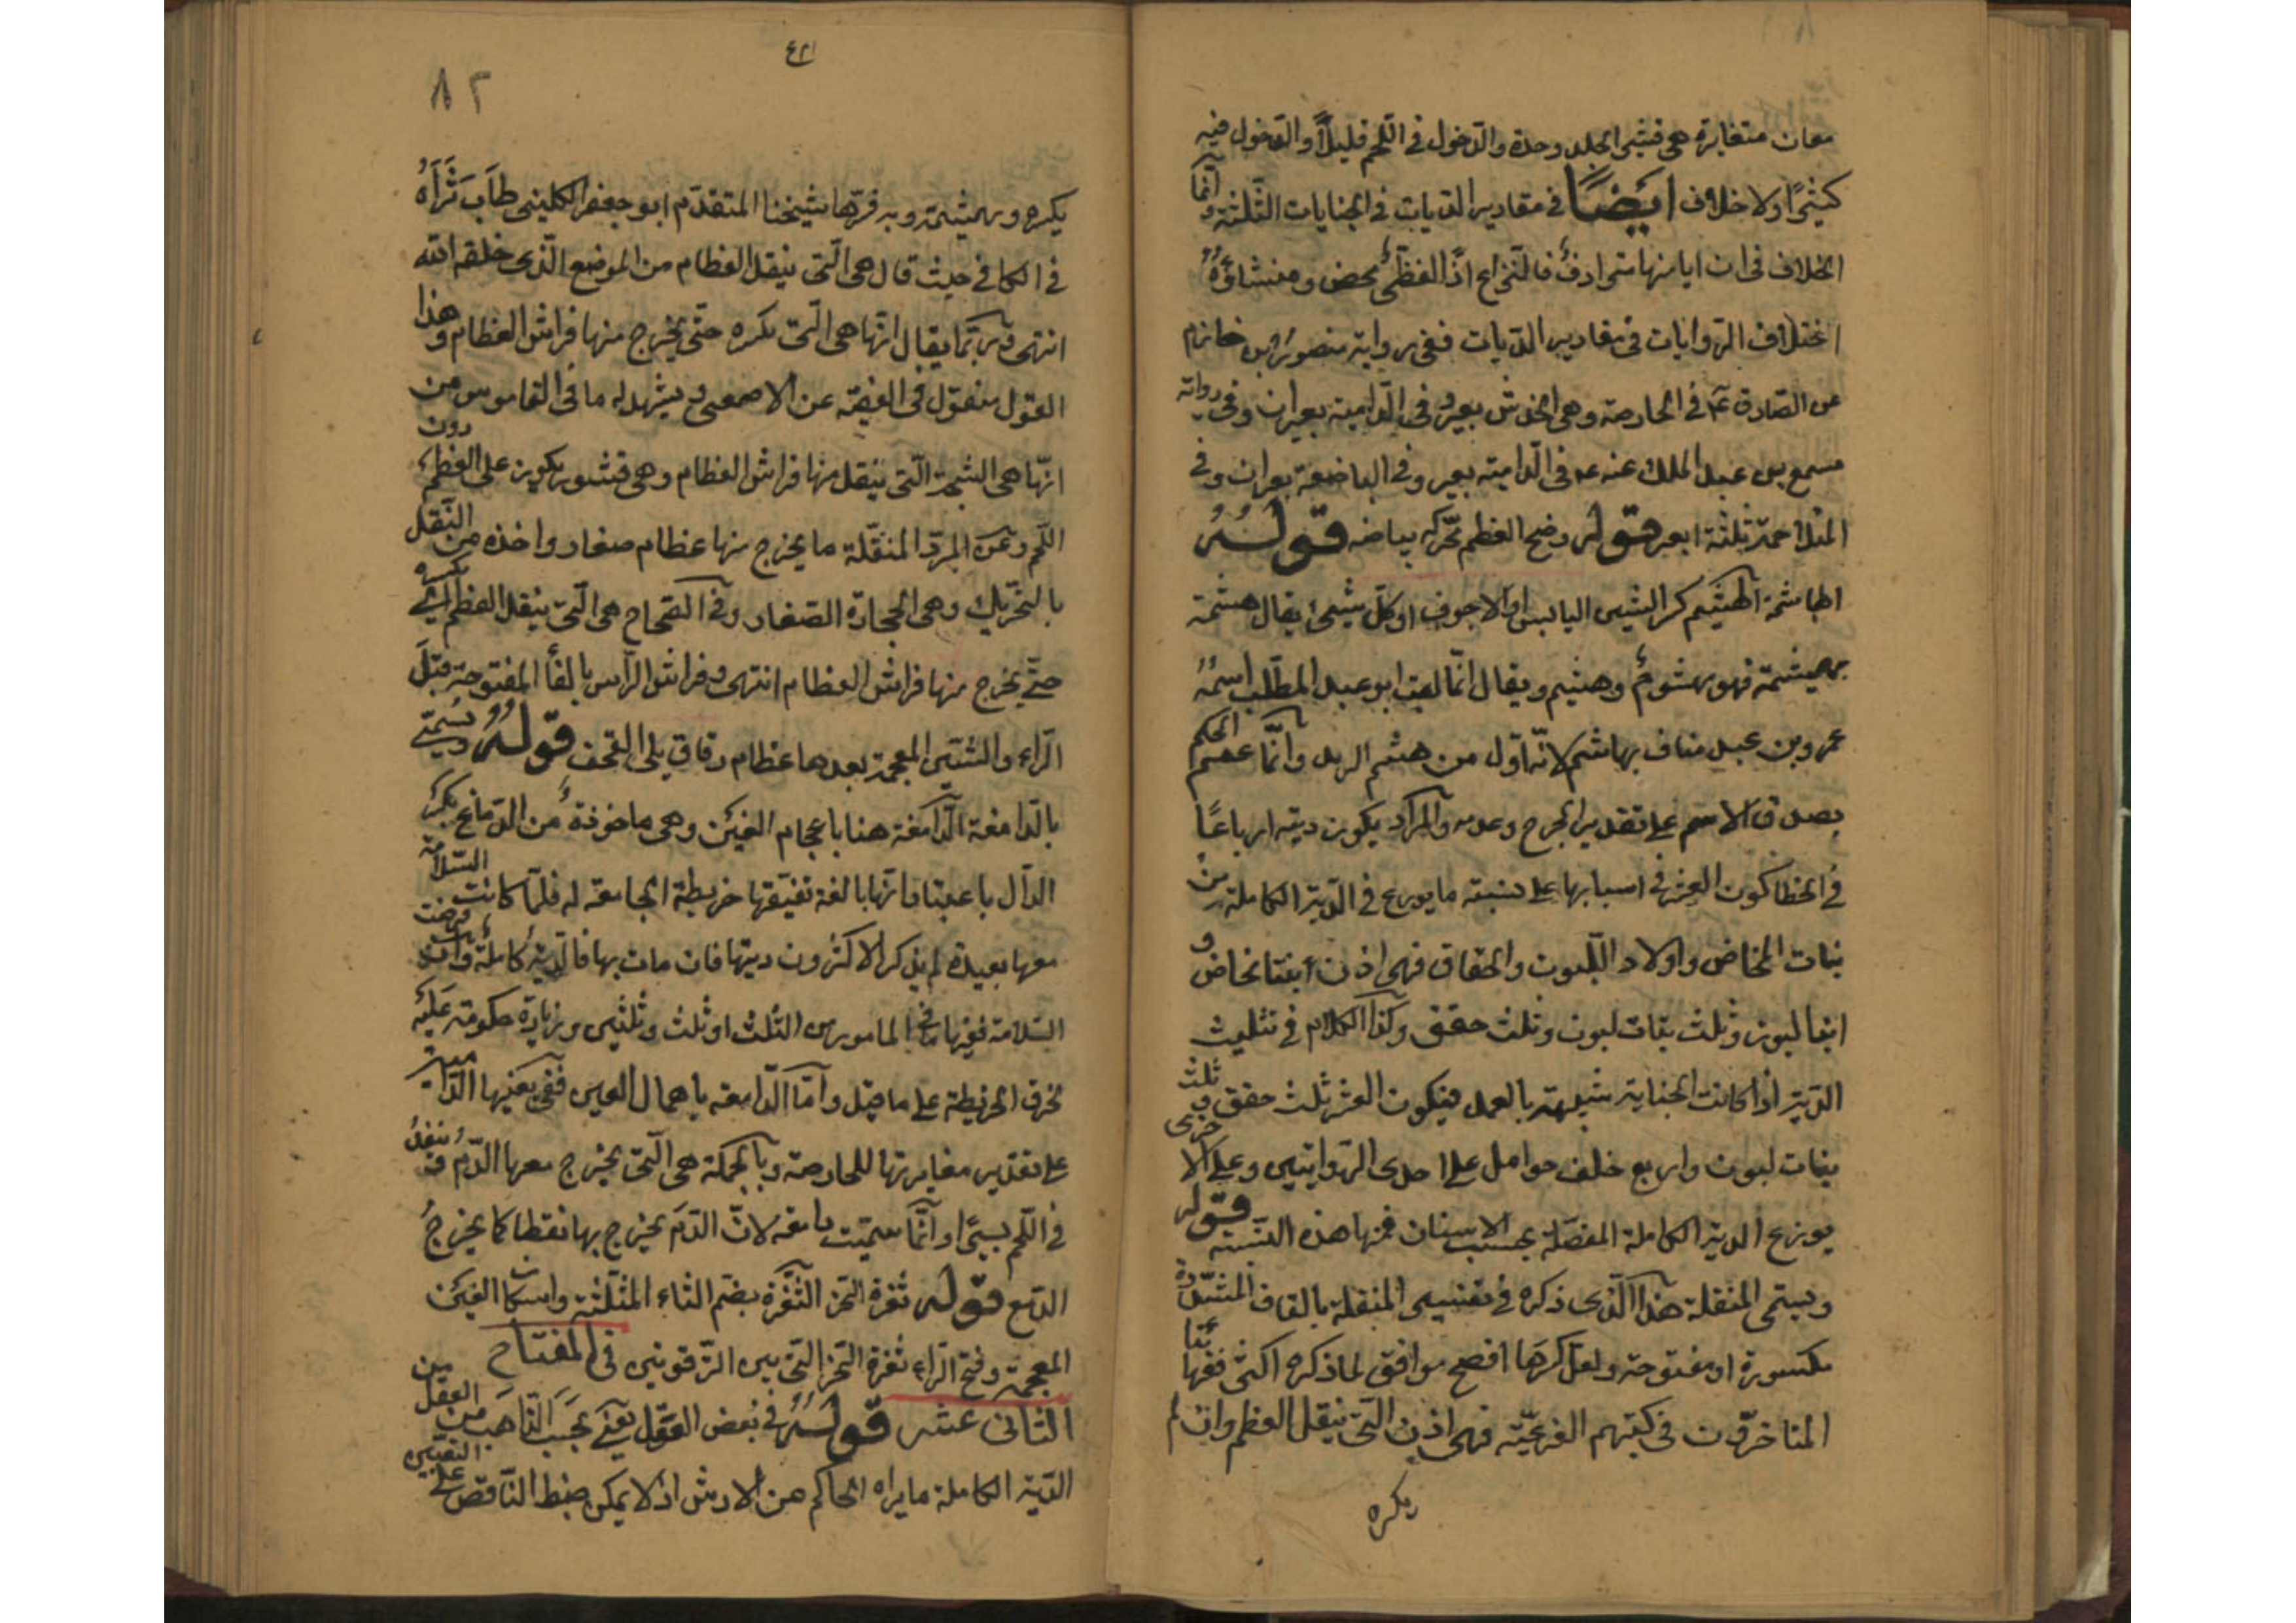 معان متغايرة هى قشر الجلد وحده والدخول فى اللحم قليلاً والدخول فيه
كثيرًا ولا خلاف ايضًا فى مقادير الديات فى الجنايات الثلثة وانما
الخلاف فى ان ايا منها مترادف فالنزاع اذًا لفظى محض ومنشاؤه
اختلاف الروايات فى مقادير الديات ففى رواية منصور بن خازم
عن الصادق ع فى الحارصة وهى الخدش بعير وفى الدامية بعيران وفى رواية
مسمع بن عبد الملك عنه ع فى الدامية بعير وفى الباضعة بعيران وفى
المتلاحمة ثلثة ابعر قوله وضح العظم محركه بياضه قوله
الهاشمة الهشيم كسر الشيى اليابس او الاجوف او كل شيئ يقال هشمه
يهشمه فهو مهشوم وهشيم ويقال انما لقب ابو عبد المطلب اسمه
عمرو بن عبد مناف بهاشم لانه اول من هشم الثريد وانما عمم الحكم
بصدق الاسم على تقدير الجرح وعدمه والمراد يكون ديته ارباعًا
فى الخطا كون العشر فى اسبابها على نسبته ما يوزع فى الدية الكاملة من
بنات المخاض واولاد اللبون والحقاق فهى اذن ابنتا مخاض و
ابنا لبون وثلث بنات لبون وثلث حقق وكذا الكلام فى تثليث
الدية اذا كانت الجناية شبيهة بالعمد فيكون العشر ثلث حقق و ثلث
بنات لبون واربع خلف حوامل على احدى الروايتين وعلى الاخرى
يوزع الدية الكاملة المفصلة بحسب الاسنان فمنها هذه النسبة قوله
ويسمى المنقلة هذا الذى ذكره فى تفسير المنقلة بالقاف المشددة
مكسورة او مفتوحة ولعل كسرها افصح موافق لما ذكره اكثر فقهائنا
المتاخرون فى كتبهم الفرعية فهى اذن التى ينقل العظم وان لم
يكره
٨٢
يكره ويهشمه وبه فسرها شيخنا المتقدم ابو جعفر الكلينى طاب ثراه
فى الكافى حيث قال هى التى ينقل العظام من الموضع الذى خلقه الله
انتهى وربما يقال انها هى التى يكسره حتى يخرج منها فراش العظام وهذا
القول منقول فى الفقيه عن الاصمعى ويشهد له ما فى القاموس من
انها هى الشجة التى ينقل منها فراش العظام وهى قشور يكون على العظم دون
اللحم وعن المبرد المنقلة ما يخرج منها عظام صغار واخذه من النقل
بالتحريك وهى الحجارة الصغار وفى الصحاح هى التى ينقل العظم اى يكسره
حتى يخرج منها فراش العظام انتهى وفراش الراس بالفاء المفتوحة قبل
الراء والشين المعجمة بعدها عظام رقاق يلى القحف قوله ويسمى
بالدامغة الدامغة هنا باعجام الغين وهى ماخوذة من الدماغ بكسر
الدال باعتبار انها بالغة تفتقها خريطة الجامعة له فلما كانت السلامة
معها بعيدة لم يذكر الاكثرون ديتها فان مات بها فالدية كاملة وان فرضت
السلامة ففيها ما فى المامومة من الثلث او ثلث وثلثين وزيادة حكومة عليه
لخرق الخريطة على ما قيل واما الدامعة باهمال العين ففى بعضها الدامية
على تقدير مغايرتها للحارصة وبالجملة هى التى يخرج معها الدم قد ينفذ
فى اللحم يسيرًا وانما سميت دامعه لان الدم يخرج بها نقطا كما يخرج
الدمع قوله ثغرة النحر الثغرة بضم الثاء المثلثة واسكان الغين
المعجمة وفتح الراء ثغرة النحر التى بين الترقوتين فى المفتاح
الثانى عشر قوله فى بعض العقل يعنى بحسب الذاهب من العقل من
الدية الكاملة ما يراه الحاكم من الارش اذ لا يمكن ضبط الناقص على التعيين